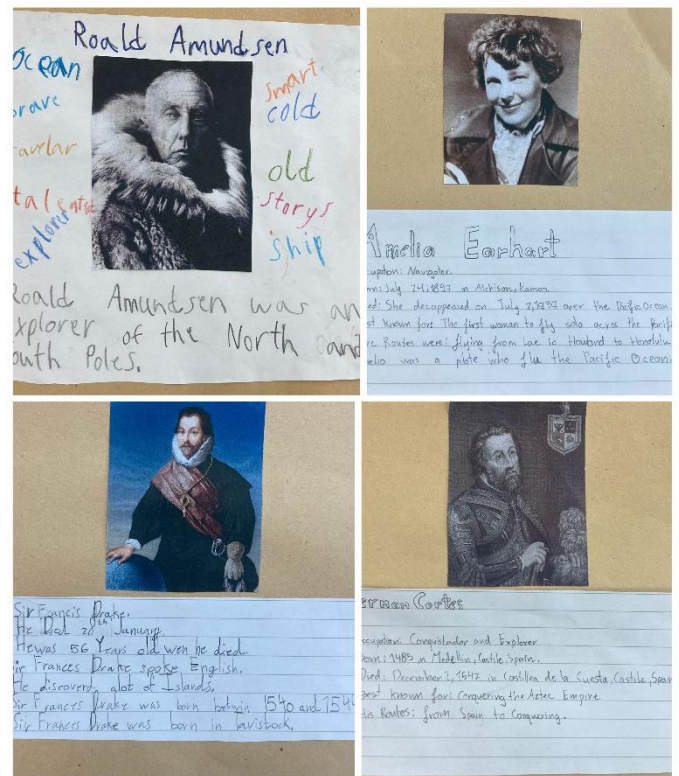 Roald Amundsen
ocean
brave
avelar
talented
explorer
smart
cold
old
storys
ship
Roald Amundsen was an
xplorer of the North and
outh Poles.
Amelia Earhart
upation: Navigator
rn: July 24, 1897 in Atchison, Kansas.
ed: She decappeared on July 2, 1939 over the Pacific Ocean.
st known for: The first woman to fly solo across the Pacifi
re Routes were: flying from Lae to Howland to Honolulu
elia was a pilote who flu the Pacific Ocean.
Sir Francis Drake.
He Died 28th January.
He was 56 Years old wen he died.
Sir Frances Drake spoke English.
He discovery alot of Islands.
Sir Frances Drake was born betwin 1540 and 154
Sir Frances Drake was born in Tavistock.
ernan Cortes
ccupation: Conquistador and Explorer
Born: 1485 in Medellin, Castile, Spain.
Died: December 2, 1547 in Castilleja de la Cuesta, Castile, Spain
Best known for: Conquering the Aztec Empire
His Routes: from Spain to Conquering.